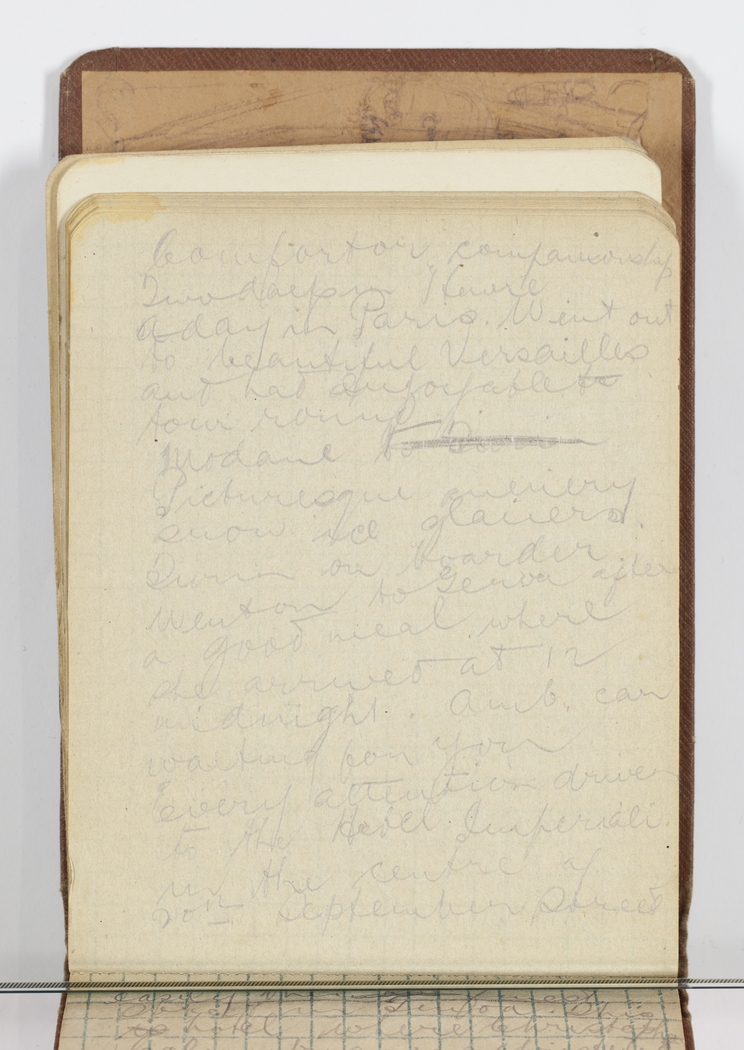 Comfort or companionship
Two days in Havre
a day in Paris. Went out
to beautiful Versailles
and had enjoyable to
tour round
Modane to Turin
Picturesque scenery
snow ice glaciers.
Turin on boarder.
Went on to Genoa after
a good meal where
she arrived at 12
midnight. Amb. car
waiting for you
Every attention driven
to the Hotel Imperiali.
in the centre of
20th September Street
Easily
hotel where